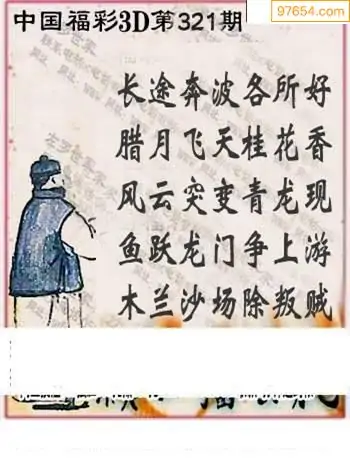 97654.com
中国福彩3D第321期
长途奔波各所好
腊月飞天桂花香
风云突变青龙现
鱼跃龙门争上游
木兰沙场除叛贼